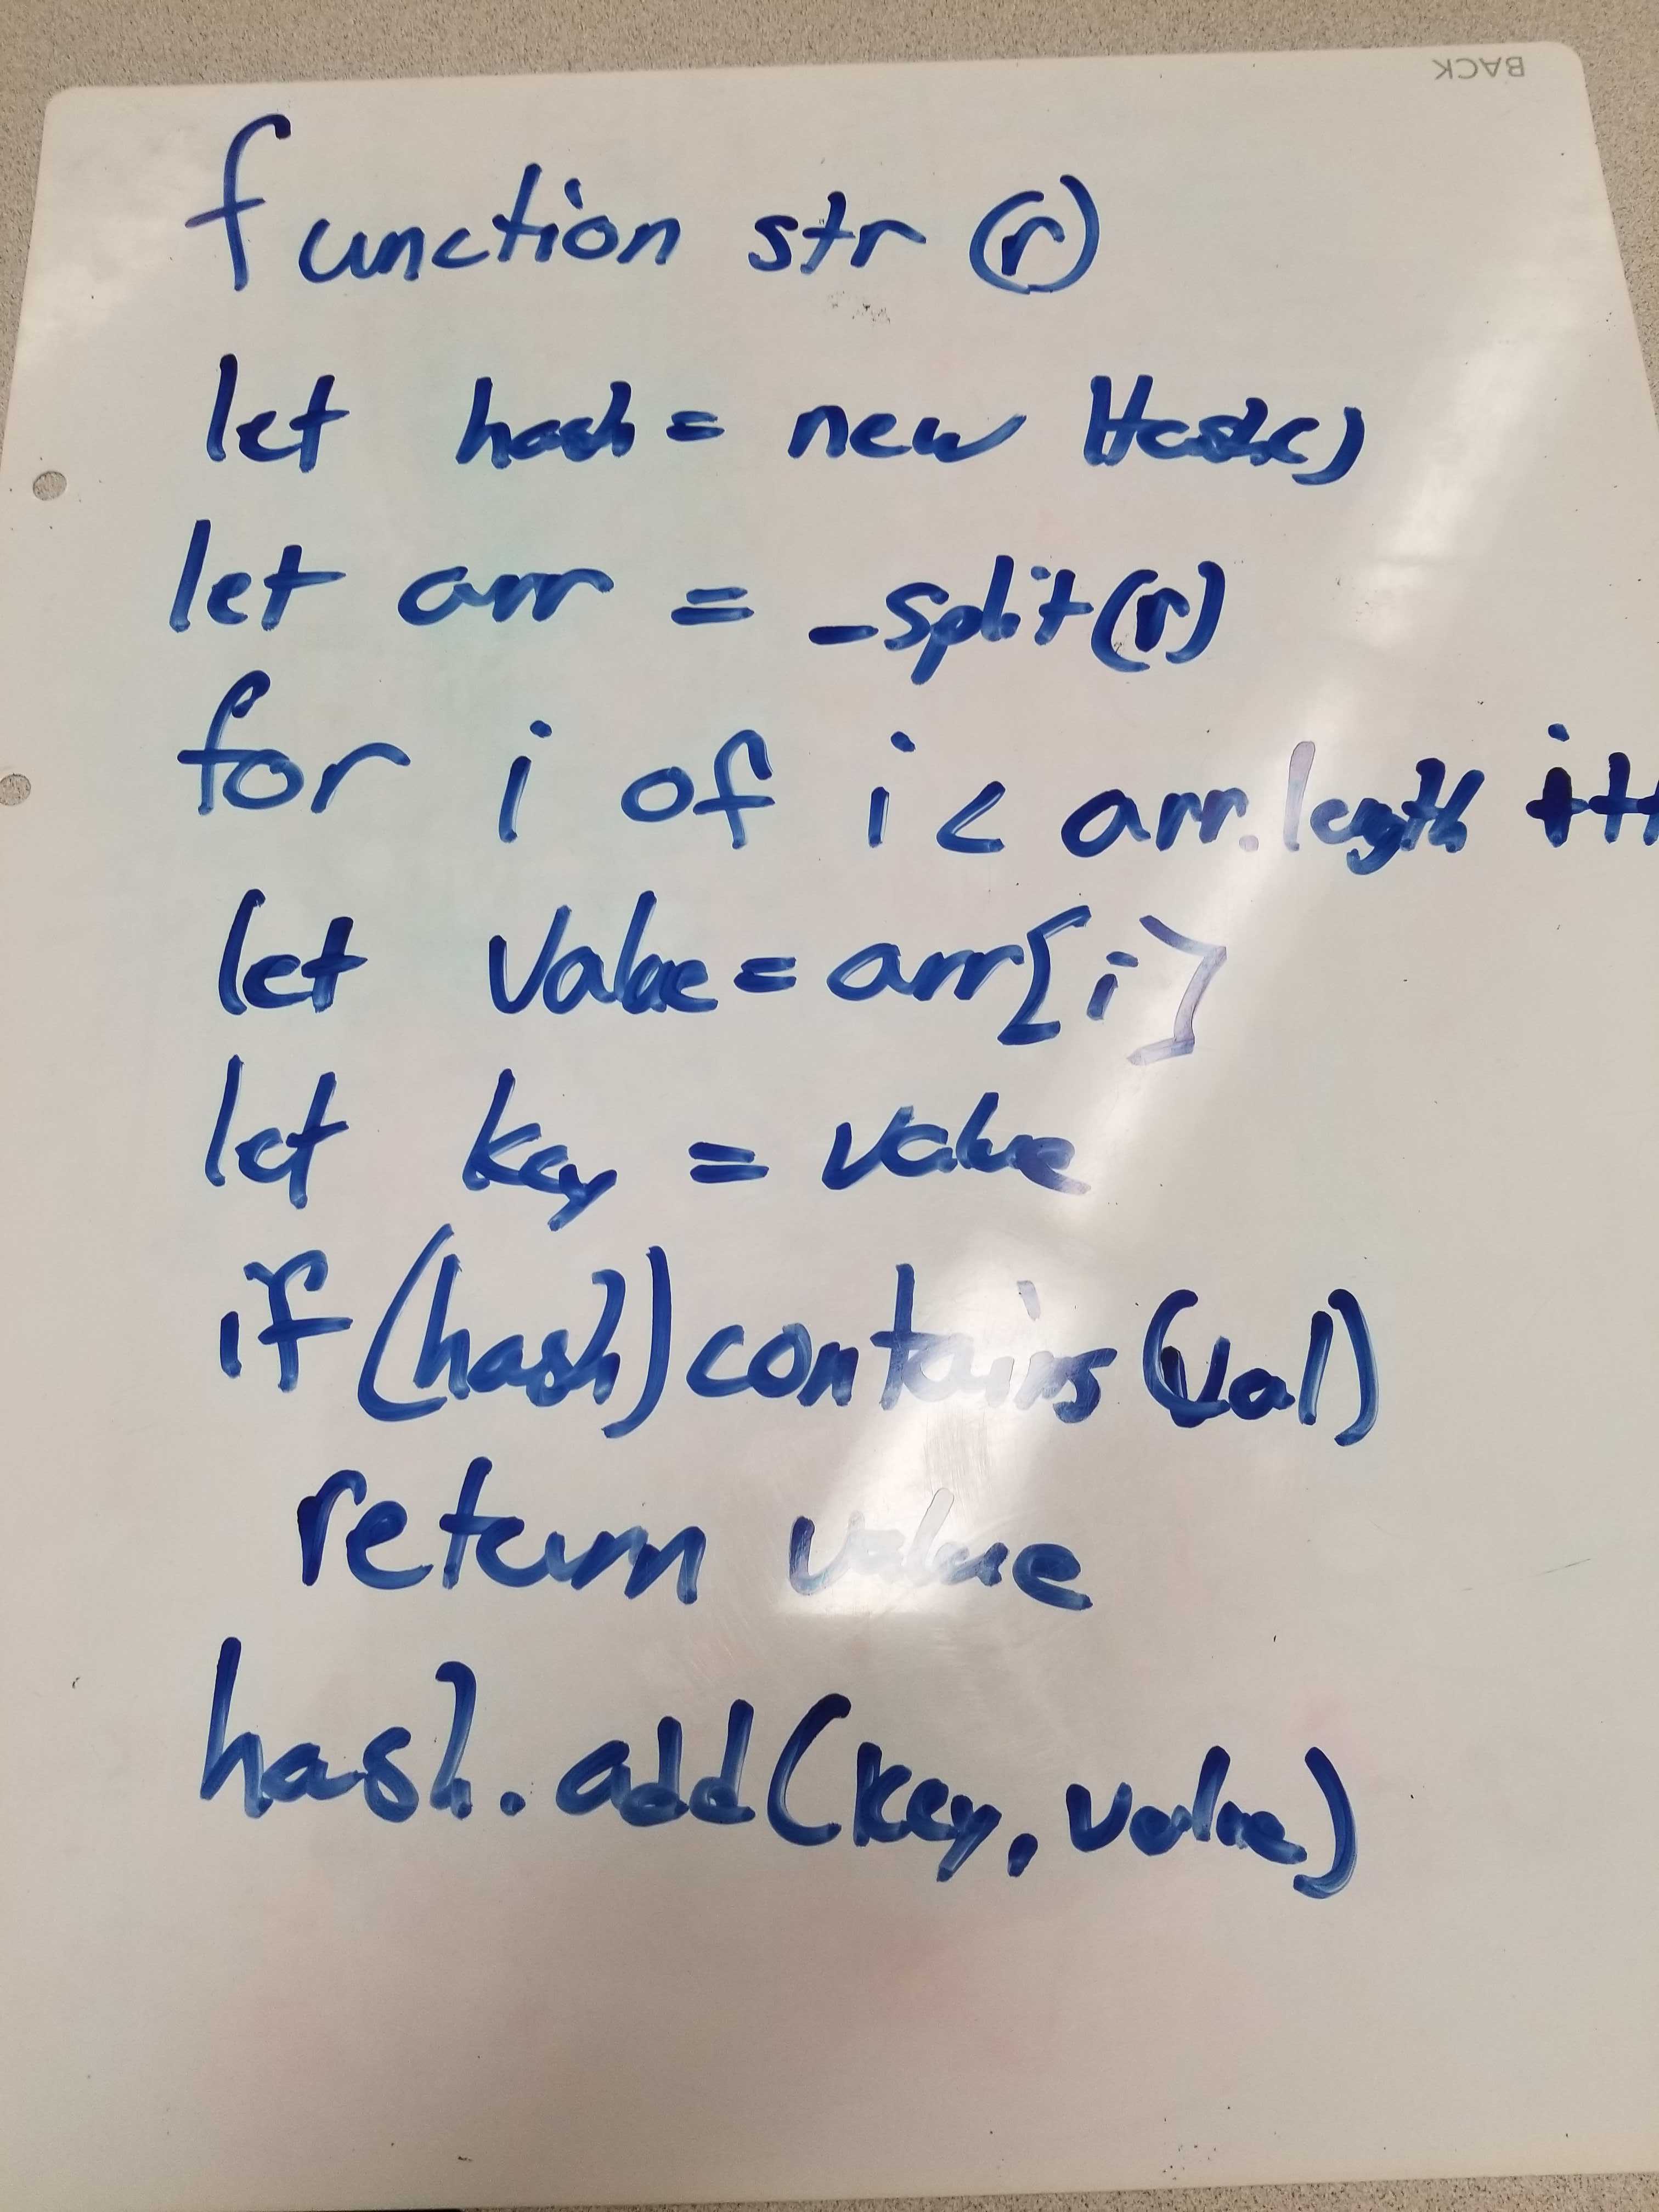 BACK
function str (r)
let hash = new Hash()
let arr = _split(r)
for i of i < arr.length i++
let value = arr[i]
let key = value
if (hash) contains (val)
return value
hash.add(key, value)